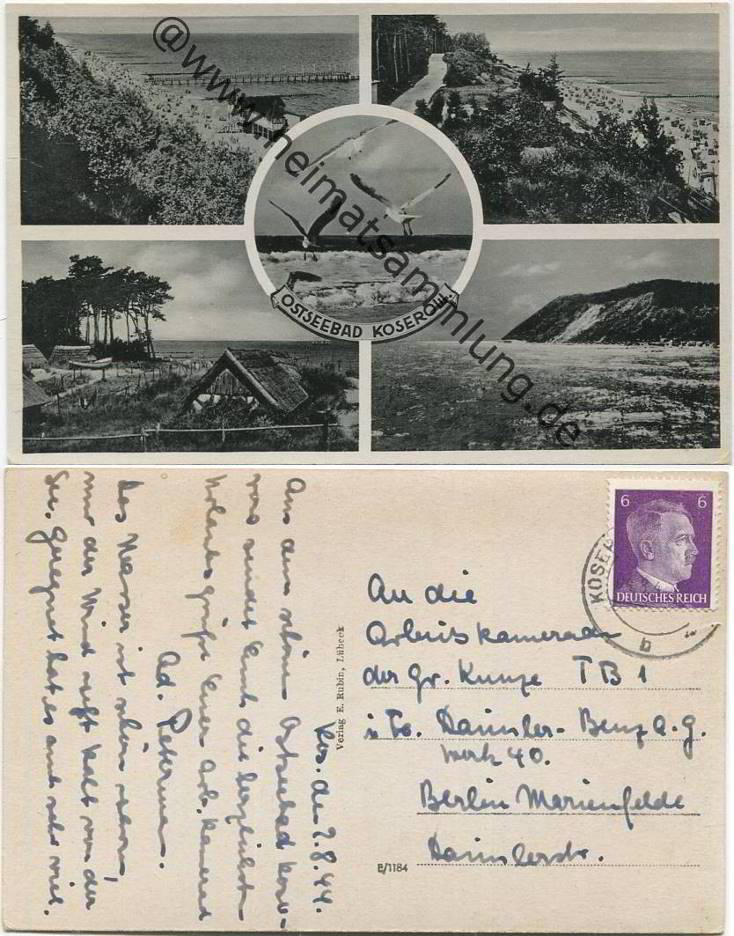 @www.heimatsammlung.de
OSTSEEBAD KOSEROW
6 6
DEUTSCHES REICH
KOSER
b
An die
Arbeitskameraden
der Gr. Kunze TB 1
i. Fa. Daimler-Benz A.G.
Werk 40.
Berlin Marienfelde
Daimlerstr.
E/1184
Verlag E. Rubin, Lübeck
Kos. den 2.8.44.
Aus dem schönen Ostseebad Kose-
row sendet Euch die herzlichsten
Urlaubsgrüße Euer Arb. Kamerad
Ad. Petermann.
Das Wasser ist schön warm,
nur der Wind weht kalt von der
See, geregnet hat es auch sehr viel.